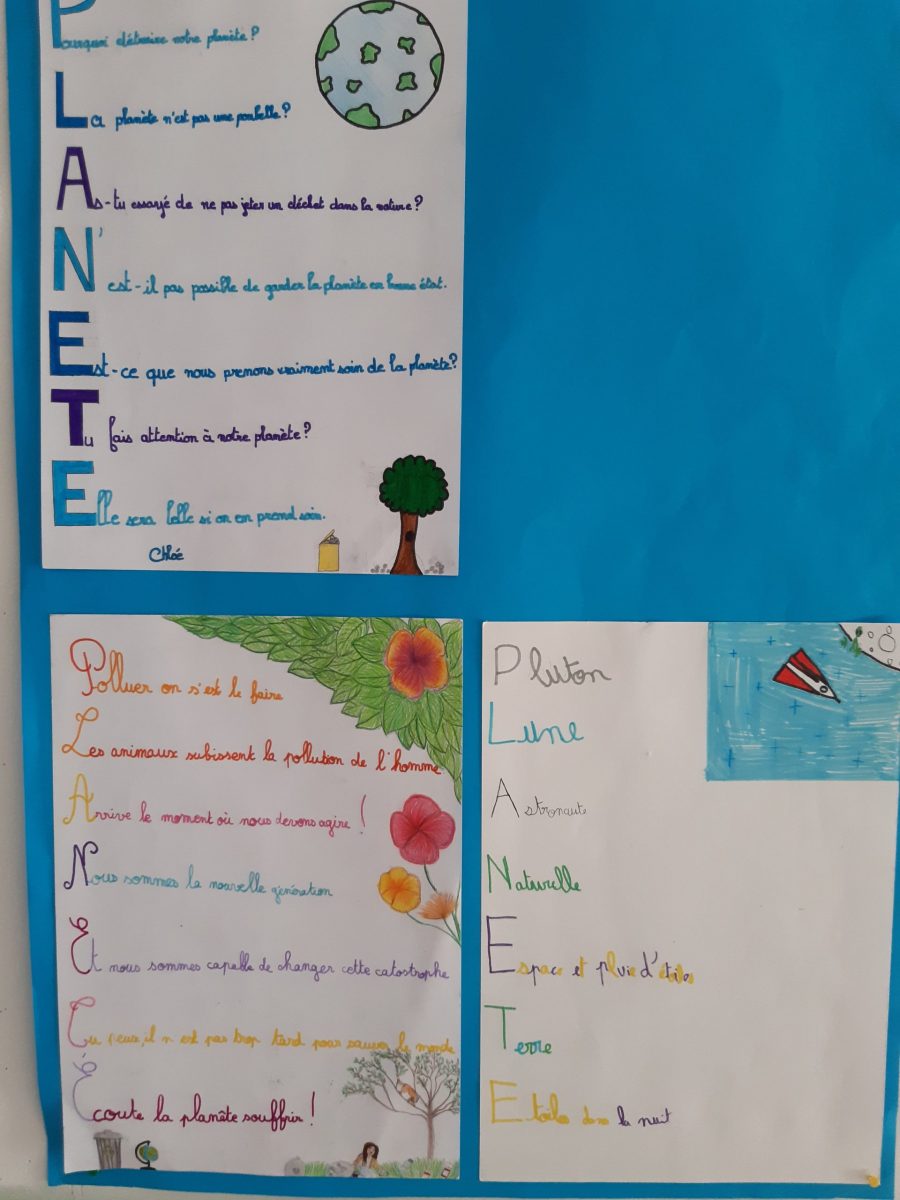 Pourquoi détruire notre planète ?
La planète n'est pas une poubelle ?
As-tu essayé de ne pas jeter un déchet dans la nature ?
N'est-il pas possible de garder la planète en bonne état.
Est-ce que nous prenons vraiment soin de la planète ?
Tu fais attention à notre planète ?
Elle sera belle si on en prend soin.
Chloé
Polluer on s'est le faire
Les animaux subissent la pollution de l'homme
Arrive le moment où nous devons agire !
Nous sommes la nouvelle génération
Et nous sommes capable de changer cette catostrophe
Tu peux, il n est pas trop tard pour sauver le monde
Écoute la planète souffrir !
Pluton
Lune
Astronaute
Naturelle
Espace et pluie d'étoiles
Terre
Etoiles dans la nuit